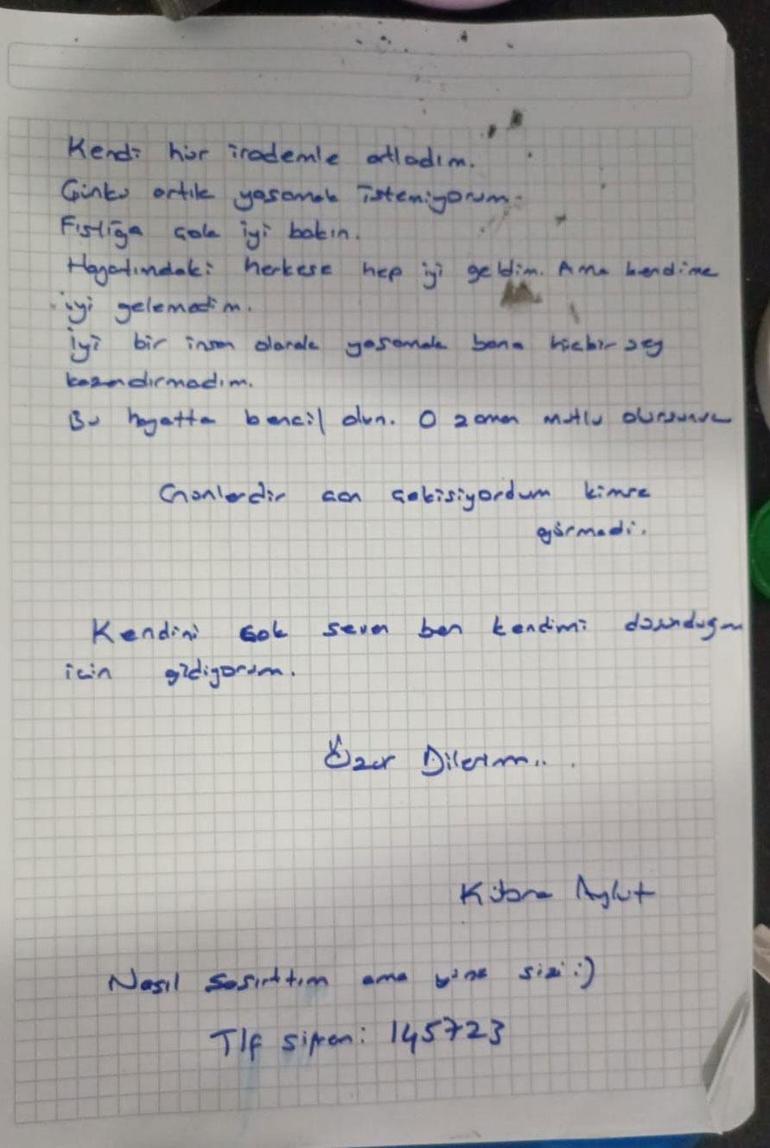 Kendi hür irademle atladım.
Çünkü artık yaşamak istemiyorum.
Fıstığa çok iyi bakın.
Hayatımdaki herkese hep iyi geldim. Ama kendime
iyi gelemedim.
İyi bir insan olarak yaşamak bana hiçbir şey
kazandırmadım.
Bu hayatta bencil olun. O zaman mutlu olursunuz
Günlerdir can çekişiyordum kimse
görmedi.
Kendini çok seven ben kendimi düşündüğüm
için gidiyorum.
Özür Dilerim...
Kübra Aykut
Nasıl şaşırttım ama yine sizi :)
Tlf şifrem: 145723